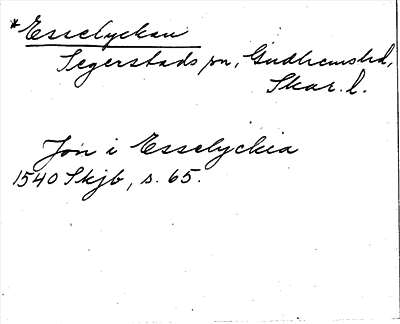 *Esselyckan
Segerstads sn, Gudhemshd,
Skar. l.
Jon i Esselyckia
1540 Skjb, s. 65.